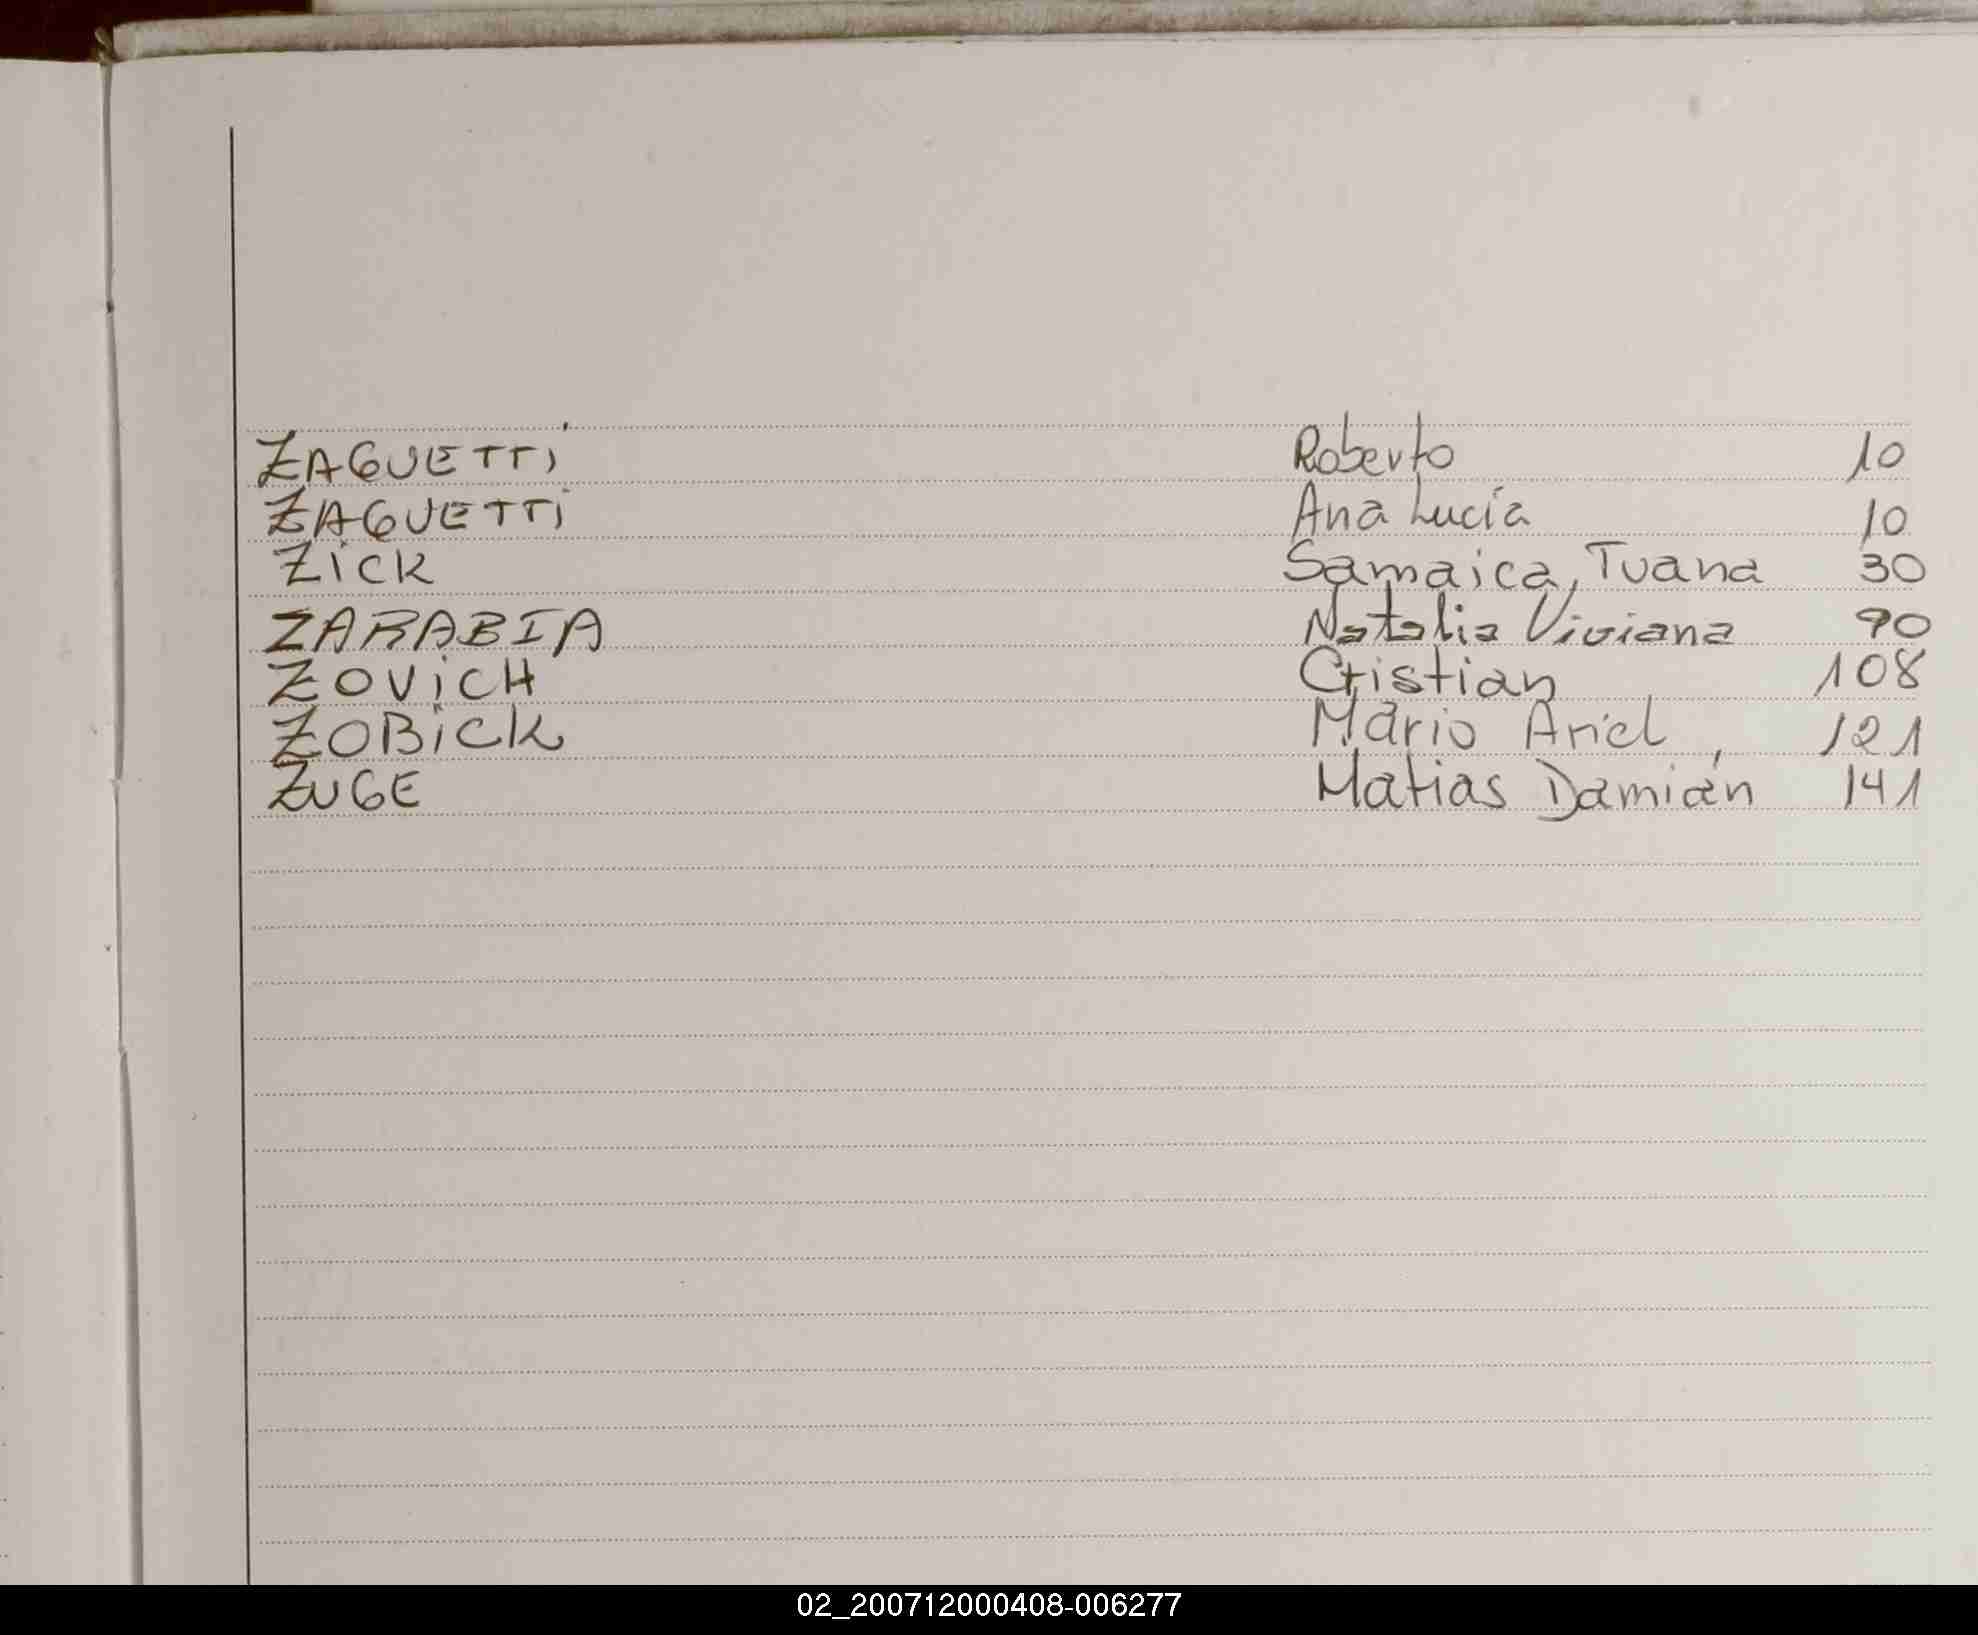 ZAGUETTi Roberto 10
ZAGUETTi Ana Lucía 10
ZiCK Samaica, Tuana 30
ZARABIA Natalia Viviana 90
ZOViCH Cristian 108
ZOBiCK Mario Ariel 121
ZUGE Matias Damián 141
02_200712000408-006277